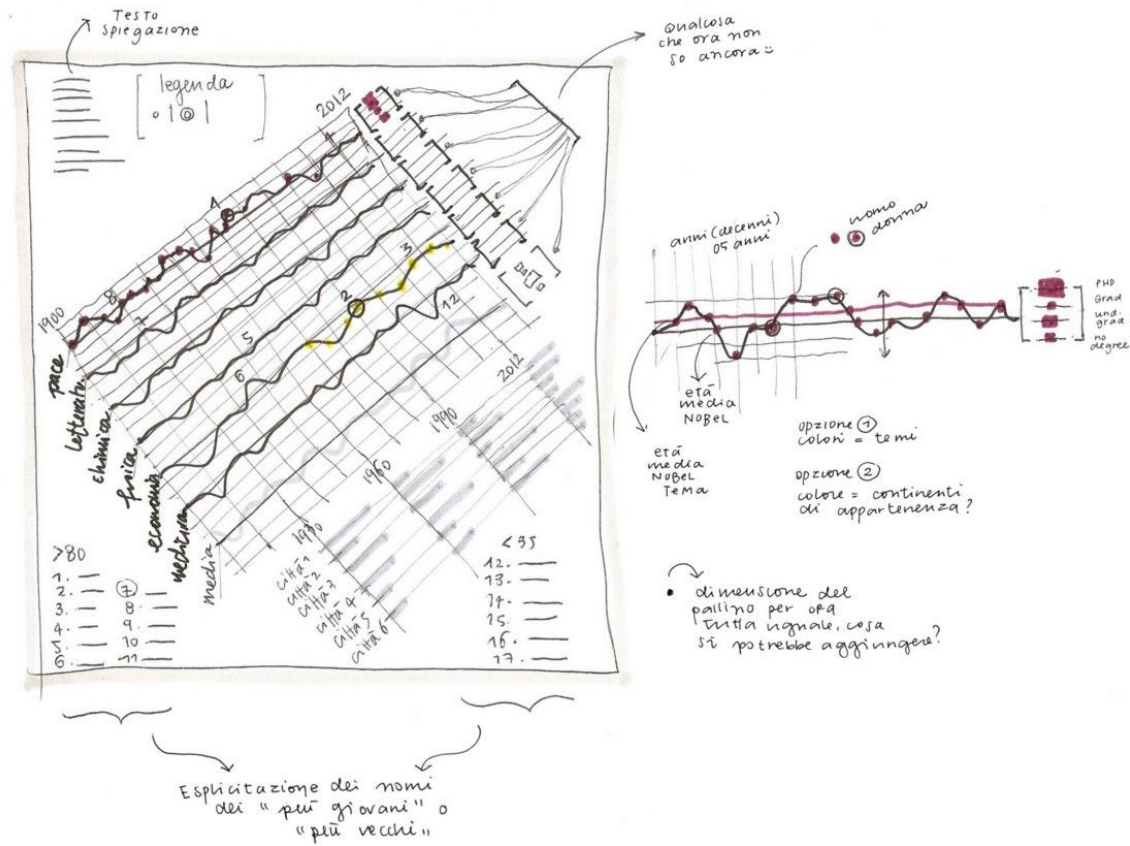 Testo
spiegazione
Qualcosa
che ora non
so ancora
legenda
2012
1900
pace
letteratu.
chimica
fisica
economia
medicina
media
4
8
7
5
6
2
3
12
1930
1960
1990
2012
città 1
città 2
città 3
città 4
città 5
città 6
>80
1.
2.
3.
4.
5.
6.
7
8
9.
10
11
<35
12.
13.
14.
15.
16.
17.
Esplicitazione dei nomi
dei "più giovani" o
"più vecchi"
anni (decenni)
05 anni
uomo
donna
PHD
Grad
und.
grad
no
degree
età
media
NOBEL
età
media
NOBEL
TEMA
opzione 1
colori = temi
opzione 2
colore = continenti
di appartenenza?
• dimensione del
pallino per ora
tutta uguale, cosa
si potrebbe aggiungere?